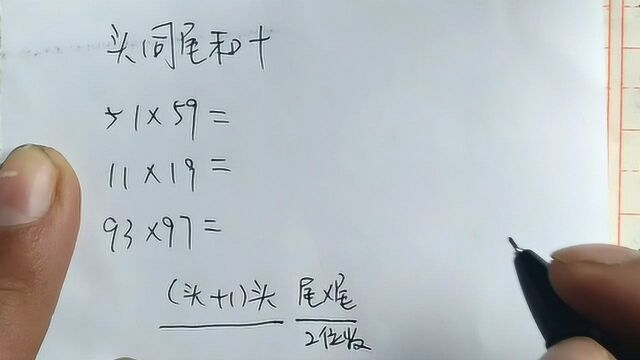 头同尾和十
51×59=
11×19=
93×97=
(头+1)头 尾×尾
2位收